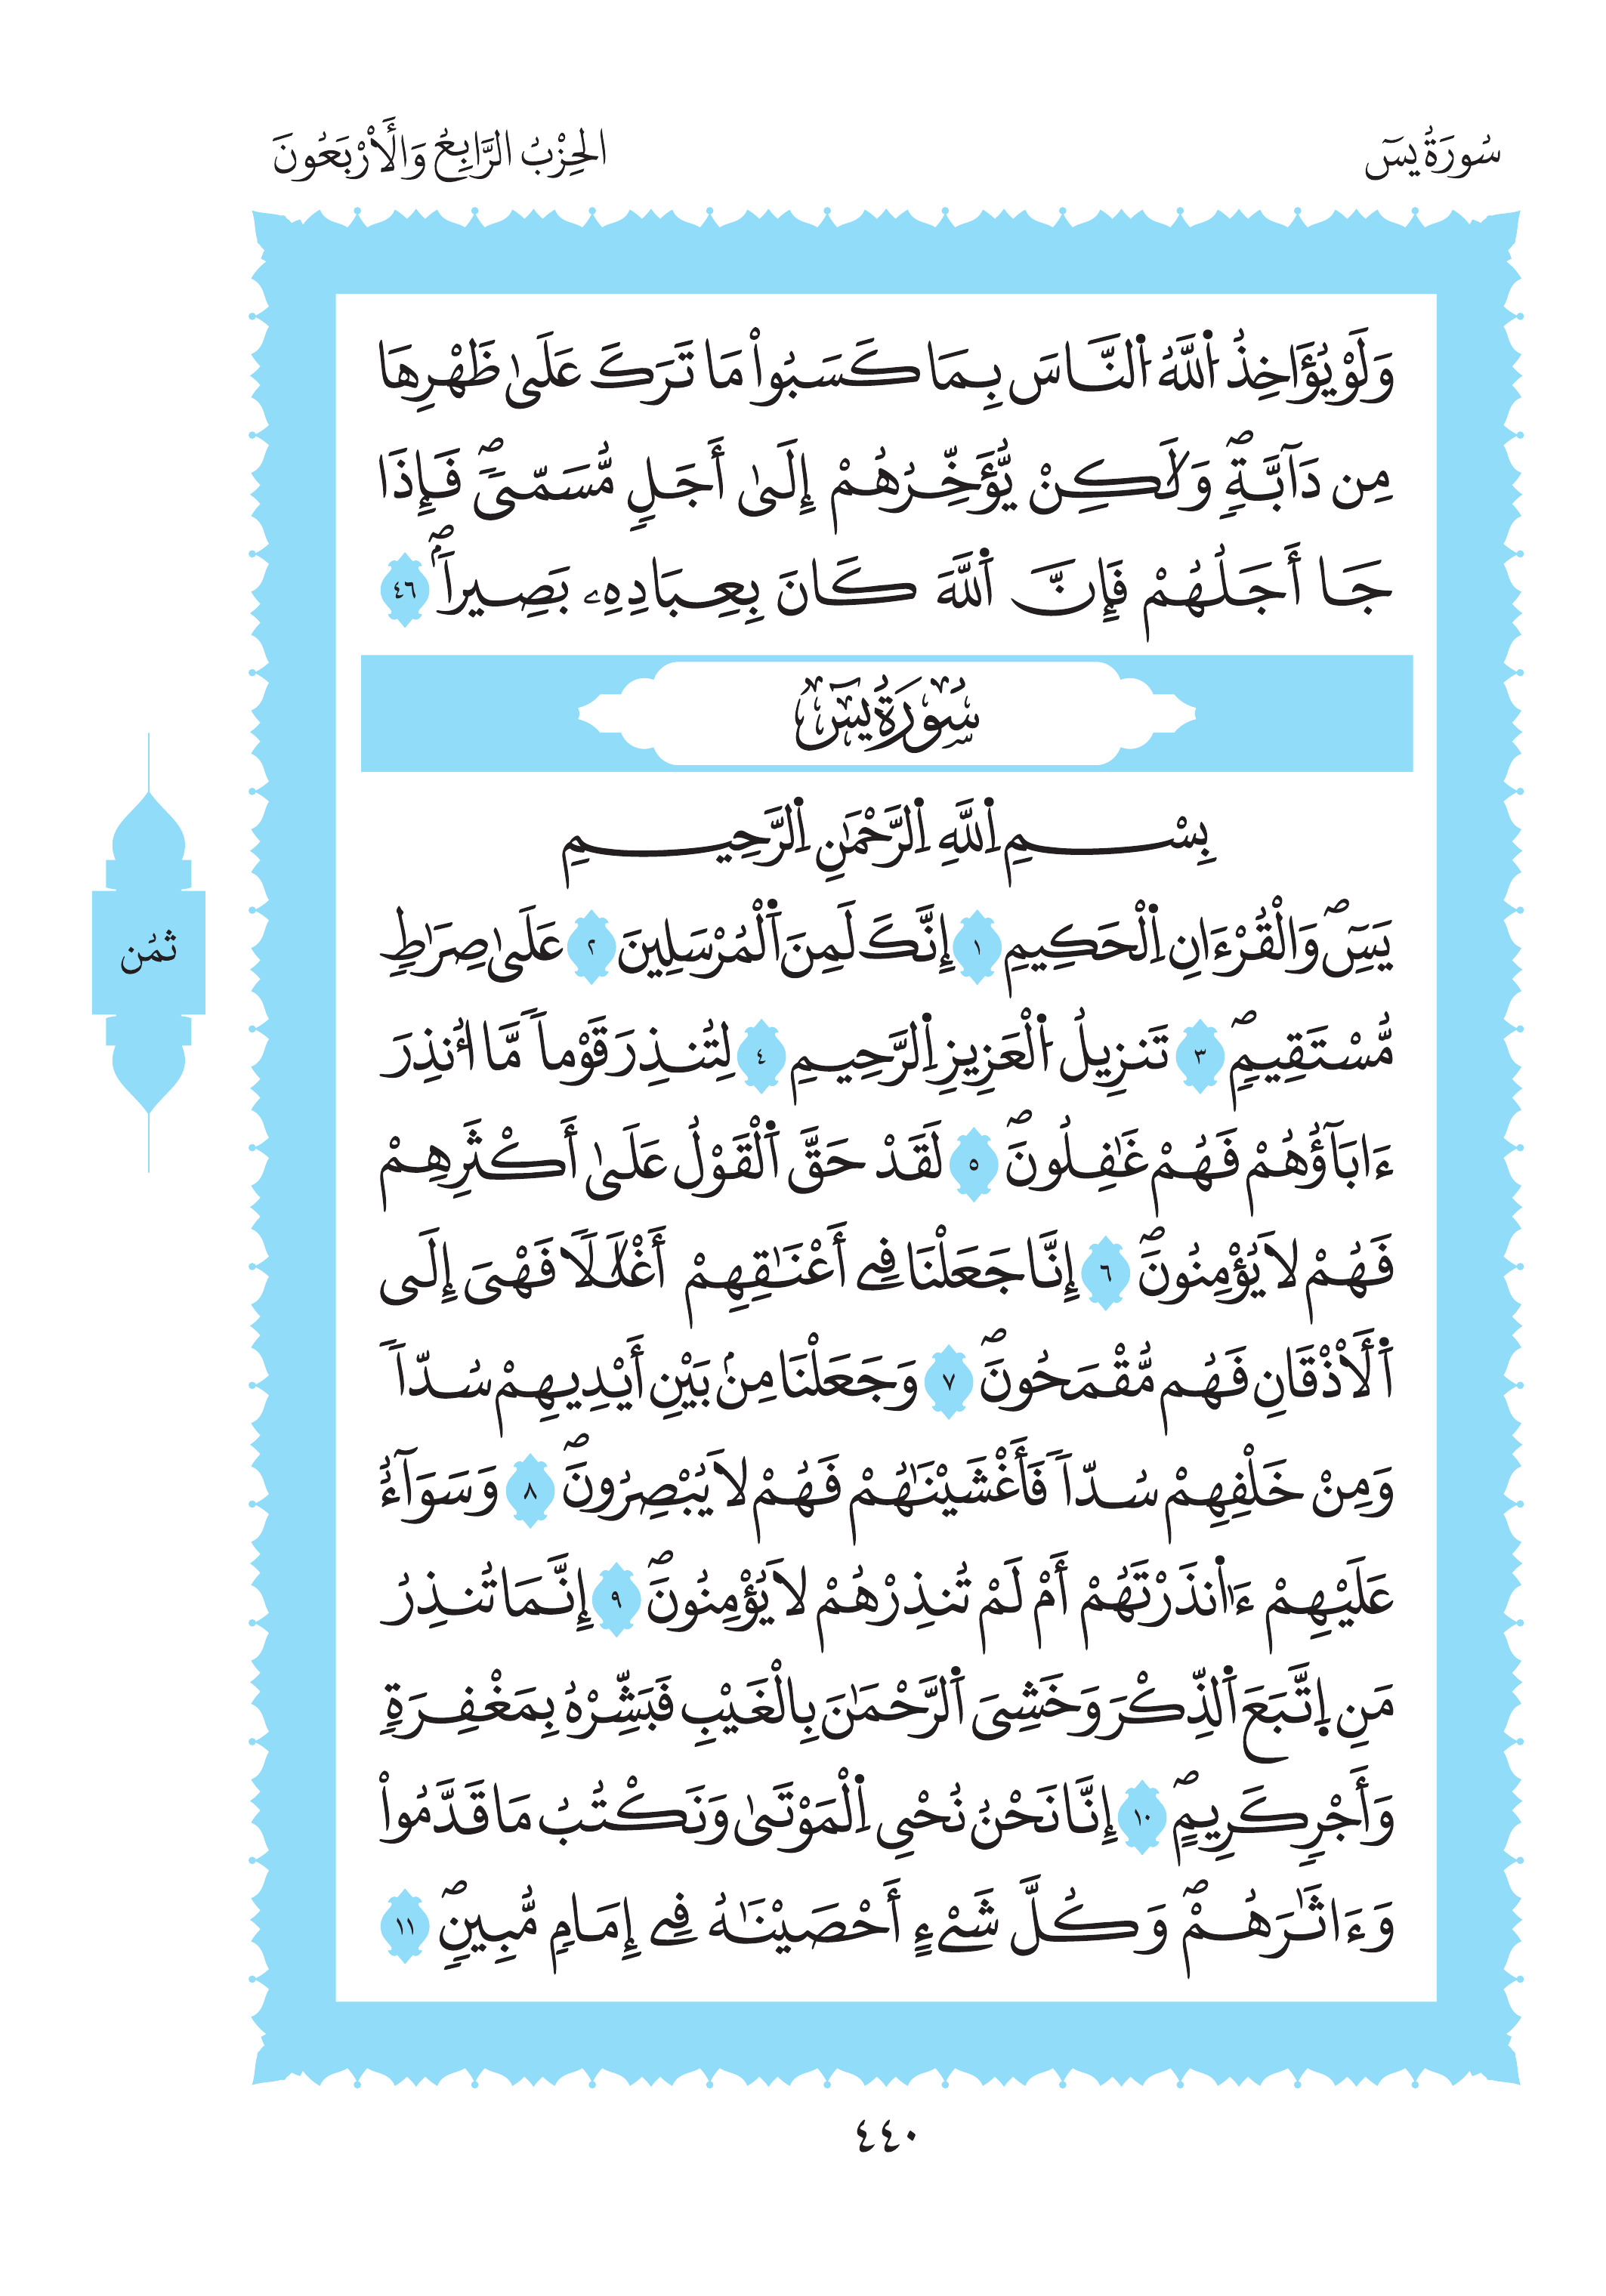 سُورَةُ يسٓ
الحِزْبُ الرَّابِعُ وَالْأَرْبَعُونَ
وَلَوْ يُؤَاخِذُ اُ۬للَّهُ اُ۬لنَّاسَ بِمَا كَسَبُواْ مَا تَرَكَ عَلَىٰ ظَهْرِهَا
مِن دَآبَّةٖۖ وَلَٰكِنْ يُّؤَخِّرُهُمْ إِلَىٰ أَجَلٖ مُّسَمّىٗۖ فَإِذَا
جَا أَجَلُهُمْ فَإِنَّ اَ۬للَّهَ كَانَ بِعِبَادِهِۦ بَصِيراَۢۖ ٤٦
سُورَةُ يسٓ
بِسْمِ اِ۬للَّهِ اِ۬لرَّحْمَٰنِ اِ۬لرَّحِيمِ
يَسِٓۖ وَالْقُرْءَانِ اِ۬لْحَكِيمِ ١ إِنَّكَ لَمِنَ اَ۬لْمُرْسَلِينَ ٢ عَلَىٰ صِرَٰطٖ
مُّسْتَقِيمٖۖ ٣ تَنزِيلُ اُ۬لْعَزِيزِ اِ۬لرَّحِيمِ ٤ لِتُنذِرَ قَوْماٗ مَّا أُنذِرَ
ءَابَآؤُهُمْ فَهُمْ غَٰفِلُونَۖ ٥ لَقَدْ حَقَّ اَ۬لْقَوْلُ عَلَىٰ أَكْثَرِهِمْ
فَهُمْ لَا يُؤْمِنُونَۖ ٦ إِنَّا جَعَلْنَا فِے أَعْنَٰقِهِمْ أَغْلَٰلاٗ فَهْىَ إِلَى
اَ۬لْأَذْقَانِ فَهُم مُّقْمَحُونَۖ ٧ وَجَعَلْنَا مِنۢ بَيْنِ أَيْدِيهِمْ سُدّاٗ
وَمِنْ خَلْفِهِمْ سُدّاٗ فَأَغْشَيْنَٰهُمْ فَهُمْ لَا يُبْصِرُونَۖ ٨ وَسَوَآءٌ
عَلَيْهِمْ ءَا۬نذَرْتَهُمْ أَمْ لَمْ تُنذِرْهُمْ لَا يُؤْمِنُونَۖ ٩ إِنَّمَا تُنذِرُ
مَنِ اِ۪تَّبَعَ اَ۬لذِّكْرَ وَخَشِىَ اَ۬لرَّحْمَٰنَ بِالْغَيْبِ فَبَشِّرْهُ بِمَغْفِرَةٖ
وَأَجْرٖ كَرِيمٍۖ ١٠ إِنَّا نَحْنُ نُحْىِ اِ۬لْمَوْتَىٰ وَنَكْتُبُ مَا قَدَّمُواْ
وَءَاثَٰرَهُمْۖ وَكُلَّ شَےْءٍ أَحْصَيْنَٰهُ فِے إِمَامٖ مُّبِينٖۖ ١١
ثمُن
٤٤٠